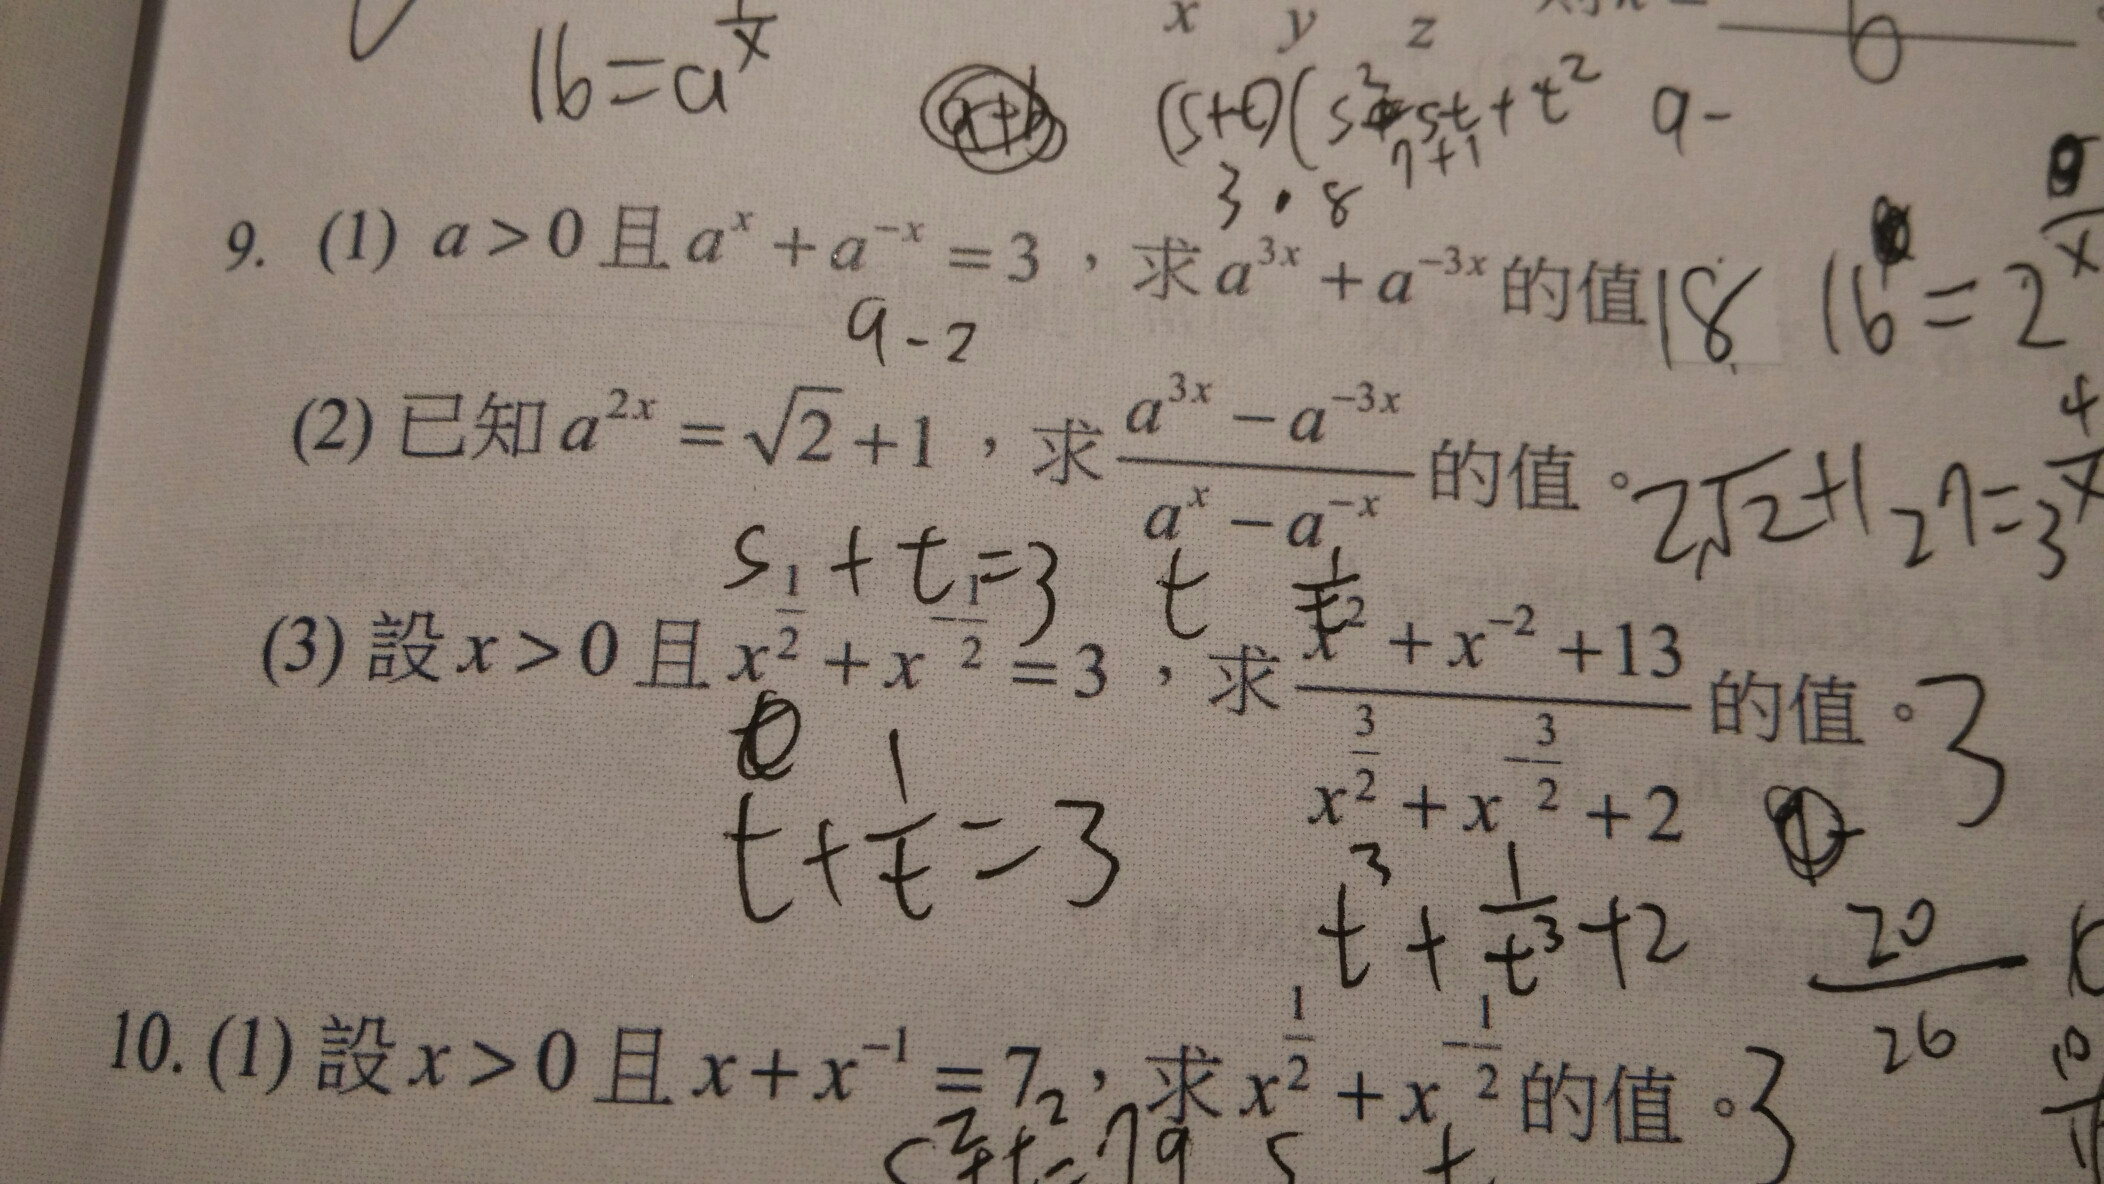 16=a^{\frac{1}{x}}
x y z
6
(s+t)(s^2-st+t^2 9-
7+1
3·8
9. (1) a>0且a^x+a^{-x}=3，求a^{3x}+a^{-3x}的值 18
16=2^{\frac{}{x}}
9-2
(2) 已知a^{2x}=\sqrt{2}+1，求\frac{a^{3x}-a^{-3x}}{a^x-a^{-x}}的值。2\sqrt{2}+1
27=3^{\frac{4}{x}}
s+t=3 t \frac{1}{t}
(3) 設x>0且x^{\frac{1}{2}}+x^{-\frac{1}{2}}=3，求\frac{x^2+x^{-2}+13}{x^{\frac{3}{2}}+x^{-\frac{3}{2}}+2}的值。3
t+\frac{1}{t}=3
t^3+\frac{1}{t^3}+2
\frac{20}{26}
10. (1) 設x>0且x+x^{-1}=7，求x^{\frac{1}{2}}+x^{-\frac{1}{2}}的值。3
s^2+t^2=7 9 s t